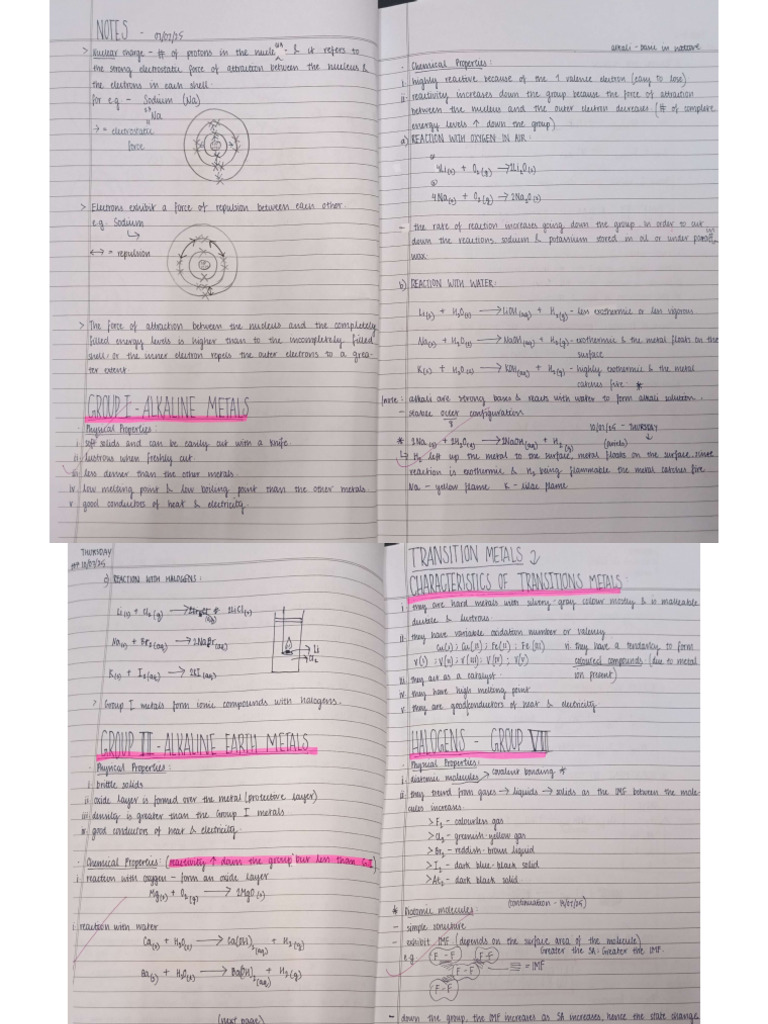 NOTES - 07/07/25
> Nuclear charge - # of protons in the nucleus & it refers to
the strong electrostatic force of attraction between the nucleus &
the electrons in each shell.
for e.g - Sodium (Na)
Na
→ = electrostatic
force
> Electrons exhibit a force of repulsion between each other.
e.g. Sodium
↔ = repulsion
> The force of attraction between the nucleus and the completely
filled energy levels is higher than to the incompletely filled
shell, or the inner electron repels the outer electrons to a grea-
ter extent.
GROUP I - ALKALINE METALS
· Physical Properties:
i soft solids and can be easily cut with a knife
ii lustrous when freshly cut
iii less denser than the other metals
iv low melting point & low boiling point than the other metals
v good conductors of heat & electricity.
alkali - basic in nature
· Chemical Properties:
i highly reactive because of the 1 valence electron (easy to lose)
ii reactivity increases down the group because the force of attraction
between the nucleus and the outer electron decreases (# of complete
energy levels ↑ down the group)
a) REACTION WITH OXYGEN IN AIR:
4Li(s) + O2(g) → 2Li2O(s)
4Na(s) + O2(g) → 2Na2O(s)
- the rate of reaction increases going down the group in order to
down the reactions, sodium & potassium stored in oil or under
wax.
b) REACTION WITH WATER:
Li(s) + H2O(l) → LiOH(aq) + H2(g) - less exothermic or less vigorous
Na(s) + H2O(l) → NaOH(aq) + H2(g) - exothermic & the metal floats on the
surface
K(s) + H2O(l) → KOH(aq) + H2(g) - highly exothermic & the metal
catches fire *
(note: alkali are strong bases & reacts with water to form alkali solution.
- stable outer configuration
10/07/25 - THURSDAY
* 2Na(s) + 2H2O(l) → 2NaOH(aq) + H2(g)
↳ H2 left up the metal to the surface, metal floats on the surface, since
reaction is exothermic & H2 being flammable the metal catches fire
Na - yellow flame K - lilac flame
THURSDAY
10/07/25
c) REACTION WITH HALOGENS:
Li(s) + Cl2(g) → 2LiCl(s)
Na(s) + Br2(aq) → 2NaBr(aq)
K(s) + I2(aq) → 2KI(aq)
Li
Cl2
> Group I metals form ionic compounds with halogens.
GROUP II - ALKALINE EARTH METALS
· Physical Properties:
i brittle solids
ii oxide layer is formed over the metal (protective layer)
iii density is greater than the Group I metals
iv good conductors of heat & electricity.
· Chemical Properties: (reactivity ↑ down the group but less than G.I)
i reaction with oxygen - form an oxide layer
Mg(s) + O2(g) → 2MgO(s)
ii reaction with water
Ca(s) + H2O(l) → Ca(OH)2(aq) + H2(g)
Ba(s) + H2O(l) → Ba(OH)2(aq) + H2(g)
(next page)
TRANSITION METALS
CHARACTERISTICS OF TRANSITIONS METALS
i they are hard metals with silvery-gray colour mostly & is malleable
ductile & lustrous
ii they have variable oxidation number or valency
Cu(I); Cu(II); Fe(II); Fe(III)
V(I); V(II); V(III); V(IV); V(V)
vi they have a tendancy to form
coloured compounds (due to metal
ion present)
iii they act as a catalyst
iv they have high melting point
v they are good conductors of heat & electricity
HALOGENS - GROUP VII
· Physical Properties:
i diatomic molecules > covalent bonding *
ii they trend from gases → liquids → solids as the IMF between the mole-
cules increases.
> F2 - colourless gas
> Cl2 - greenish-yellow gas
> Br2 - reddish-brown liquid
> I2 - dark blue-black solid
> At2 - dark black solid
* Diatomic molecules:
- simple structure
- exhibit IMF (depends on the surface area of the molecule)
e.g
Greater the SA: Greater the IMF.
F - F
F - F
F - F
F - F
= IMF
- down the group, the IMF increases as SA increases, hence the state change